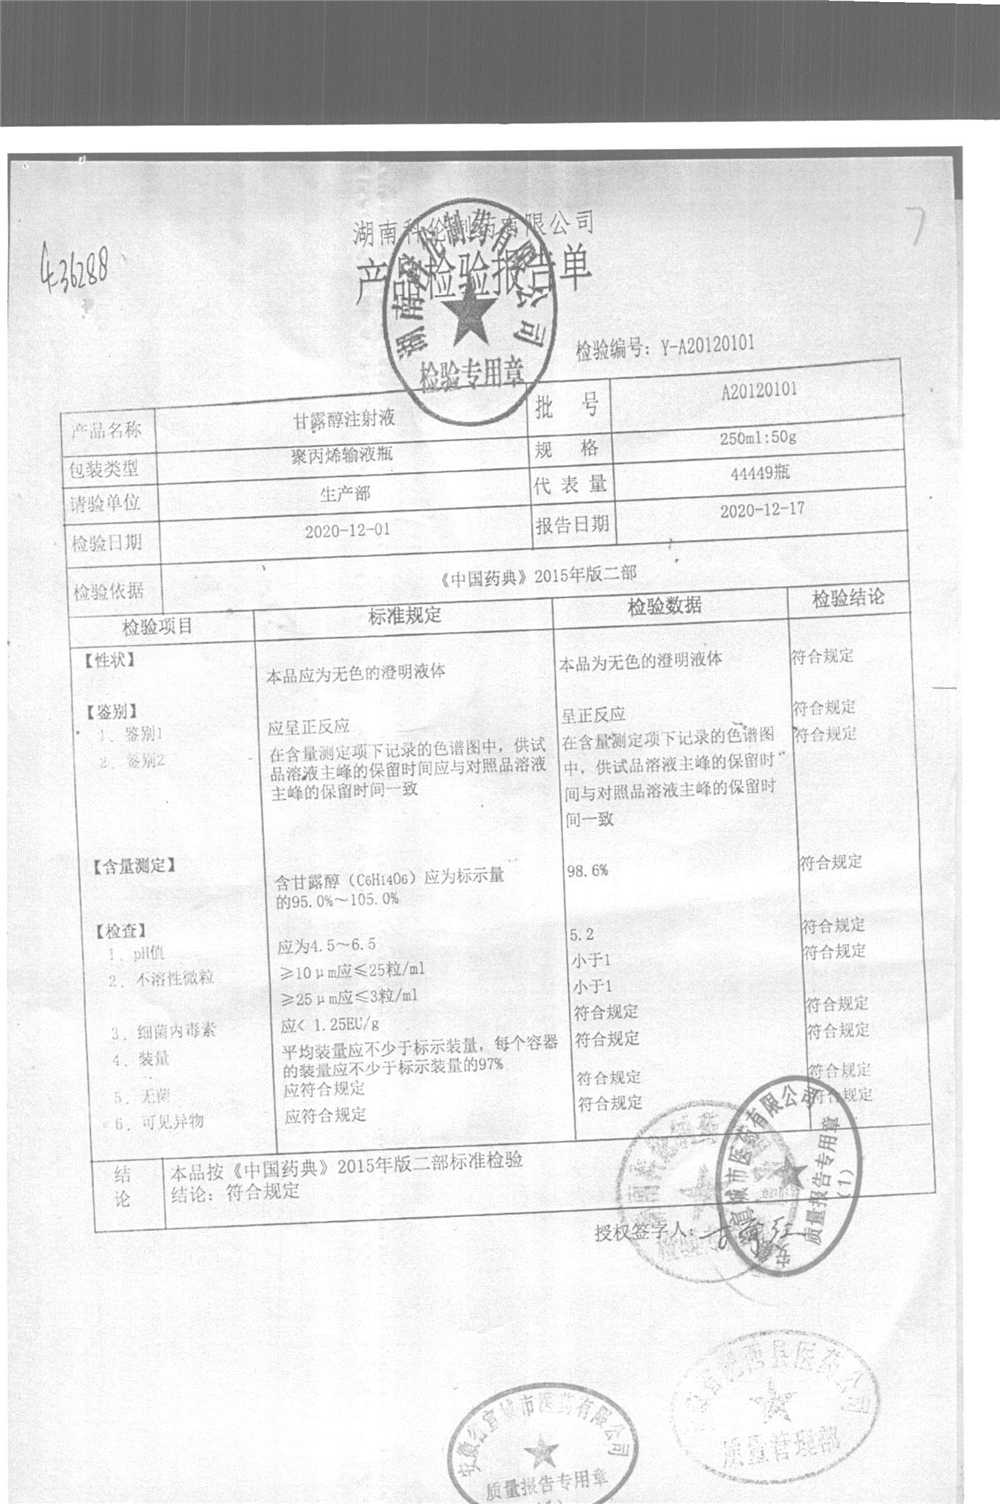 湖南科伦制药有限公司
产品检验报告单
436288
7
检验编号：Y-A20120101
湖南科伦制药有限公司
检验专用章
产品名称 甘露醇注射液 批 号 A20120101
包装类型 聚丙烯输液瓶 规 格 250ml:50g
请验单位 生产部 代 表 量 44449瓶
检验日期 2020-12-01 报告日期 2020-12-17
检验依据 《中国药典》2015年版二部
检验项目 标准规定 检验数据 检验结论
【性状】 本品应为无色的澄明液体 本品为无色的澄明液体 符合规定
【鉴别】
1、鉴别1 应呈正反应 呈正反应 符合规定
2、鉴别2 在含量测定项下记录的色谱图中，供试 在含量测定项下记录的色谱图 符合规定
品溶液主峰的保留时间应与对照品溶液 中，供试品溶液主峰的保留时
主峰的保留时间一致 间与对照品溶液主峰的保留时
间一致
【含量测定】 含甘露醇（C6H14O6）应为标示量 98.6% 符合规定
的95.0%～105.0%
【检查】
1、pH值 应为4.5～6.5 5.2 符合规定
2、不溶性微粒 ≥10μm应≤25粒/ml 小于1 符合规定
≥25μm应≤3粒/ml 小于1
3、细菌内毒素 应< 1.25EU/g 符合规定 符合规定
4、装量 平均装量应不少于标示装量，每个容器 符合规定 符合规定
的装量应不少于标示装量的97%
5、无菌 应符合规定 符合规定 符合规定
6、可见异物 应符合规定 符合规定 符合规定
结论 本品按《中国药典》2015年版二部标准检验
结论：符合规定
授权签字人：
宣城市医药有限公司
质量报告专用章
(1)
肥西县医药公司
质量管理部
宣城市医药有限公司
质量报告专用章